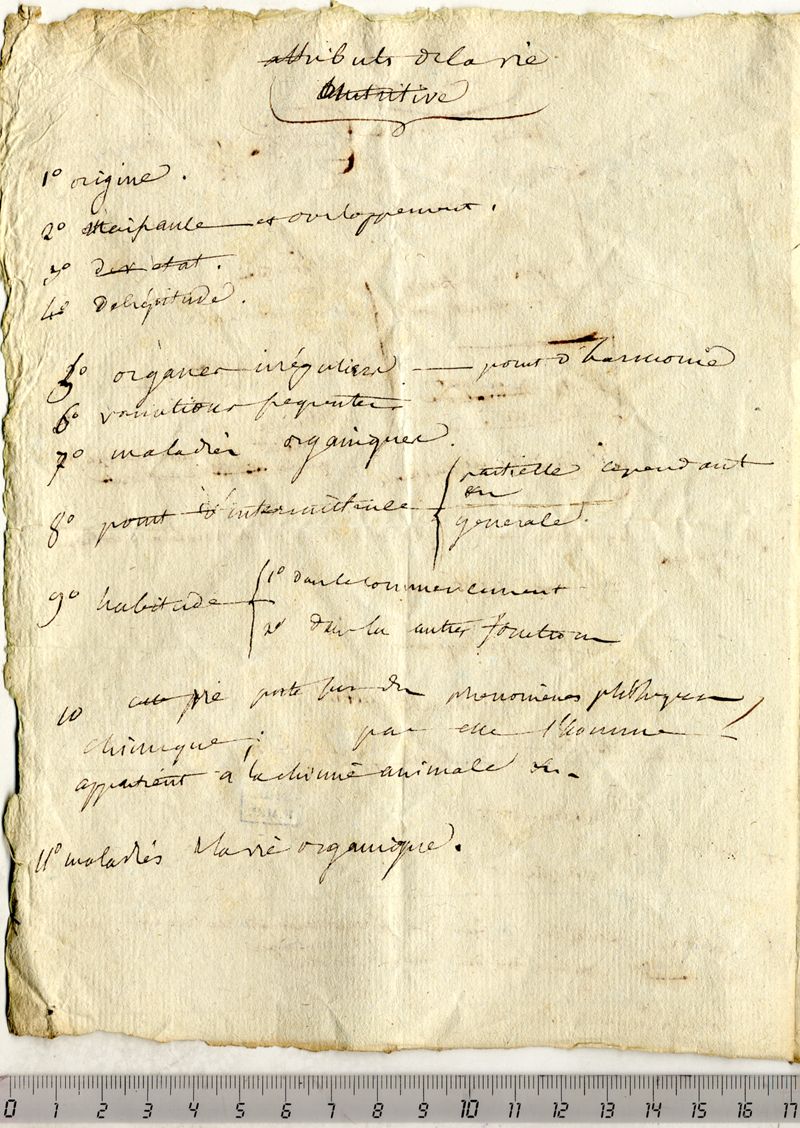 attributs de la vie
Nutritive
1º origine.
2º Naissance et développement.
3º état.
4º Décrépitude.
5º organes irréguliers — point d'harmonie
6º variations fréquentes
7º maladies organiques.
8º point d'intermittence { partielle cependant
ou
générale.
9º habitude { 1º dans le commencement
2º dans les autres fonctions
10 cette vie porte sur des phenomènes phisiques
chimique; par elle l'homme
appartient à la chimie animale &c.
11º maladies de la vie organique.
0 1 2 3 4 5 6 7 8 9 10 11 12 13 14 15 16 17